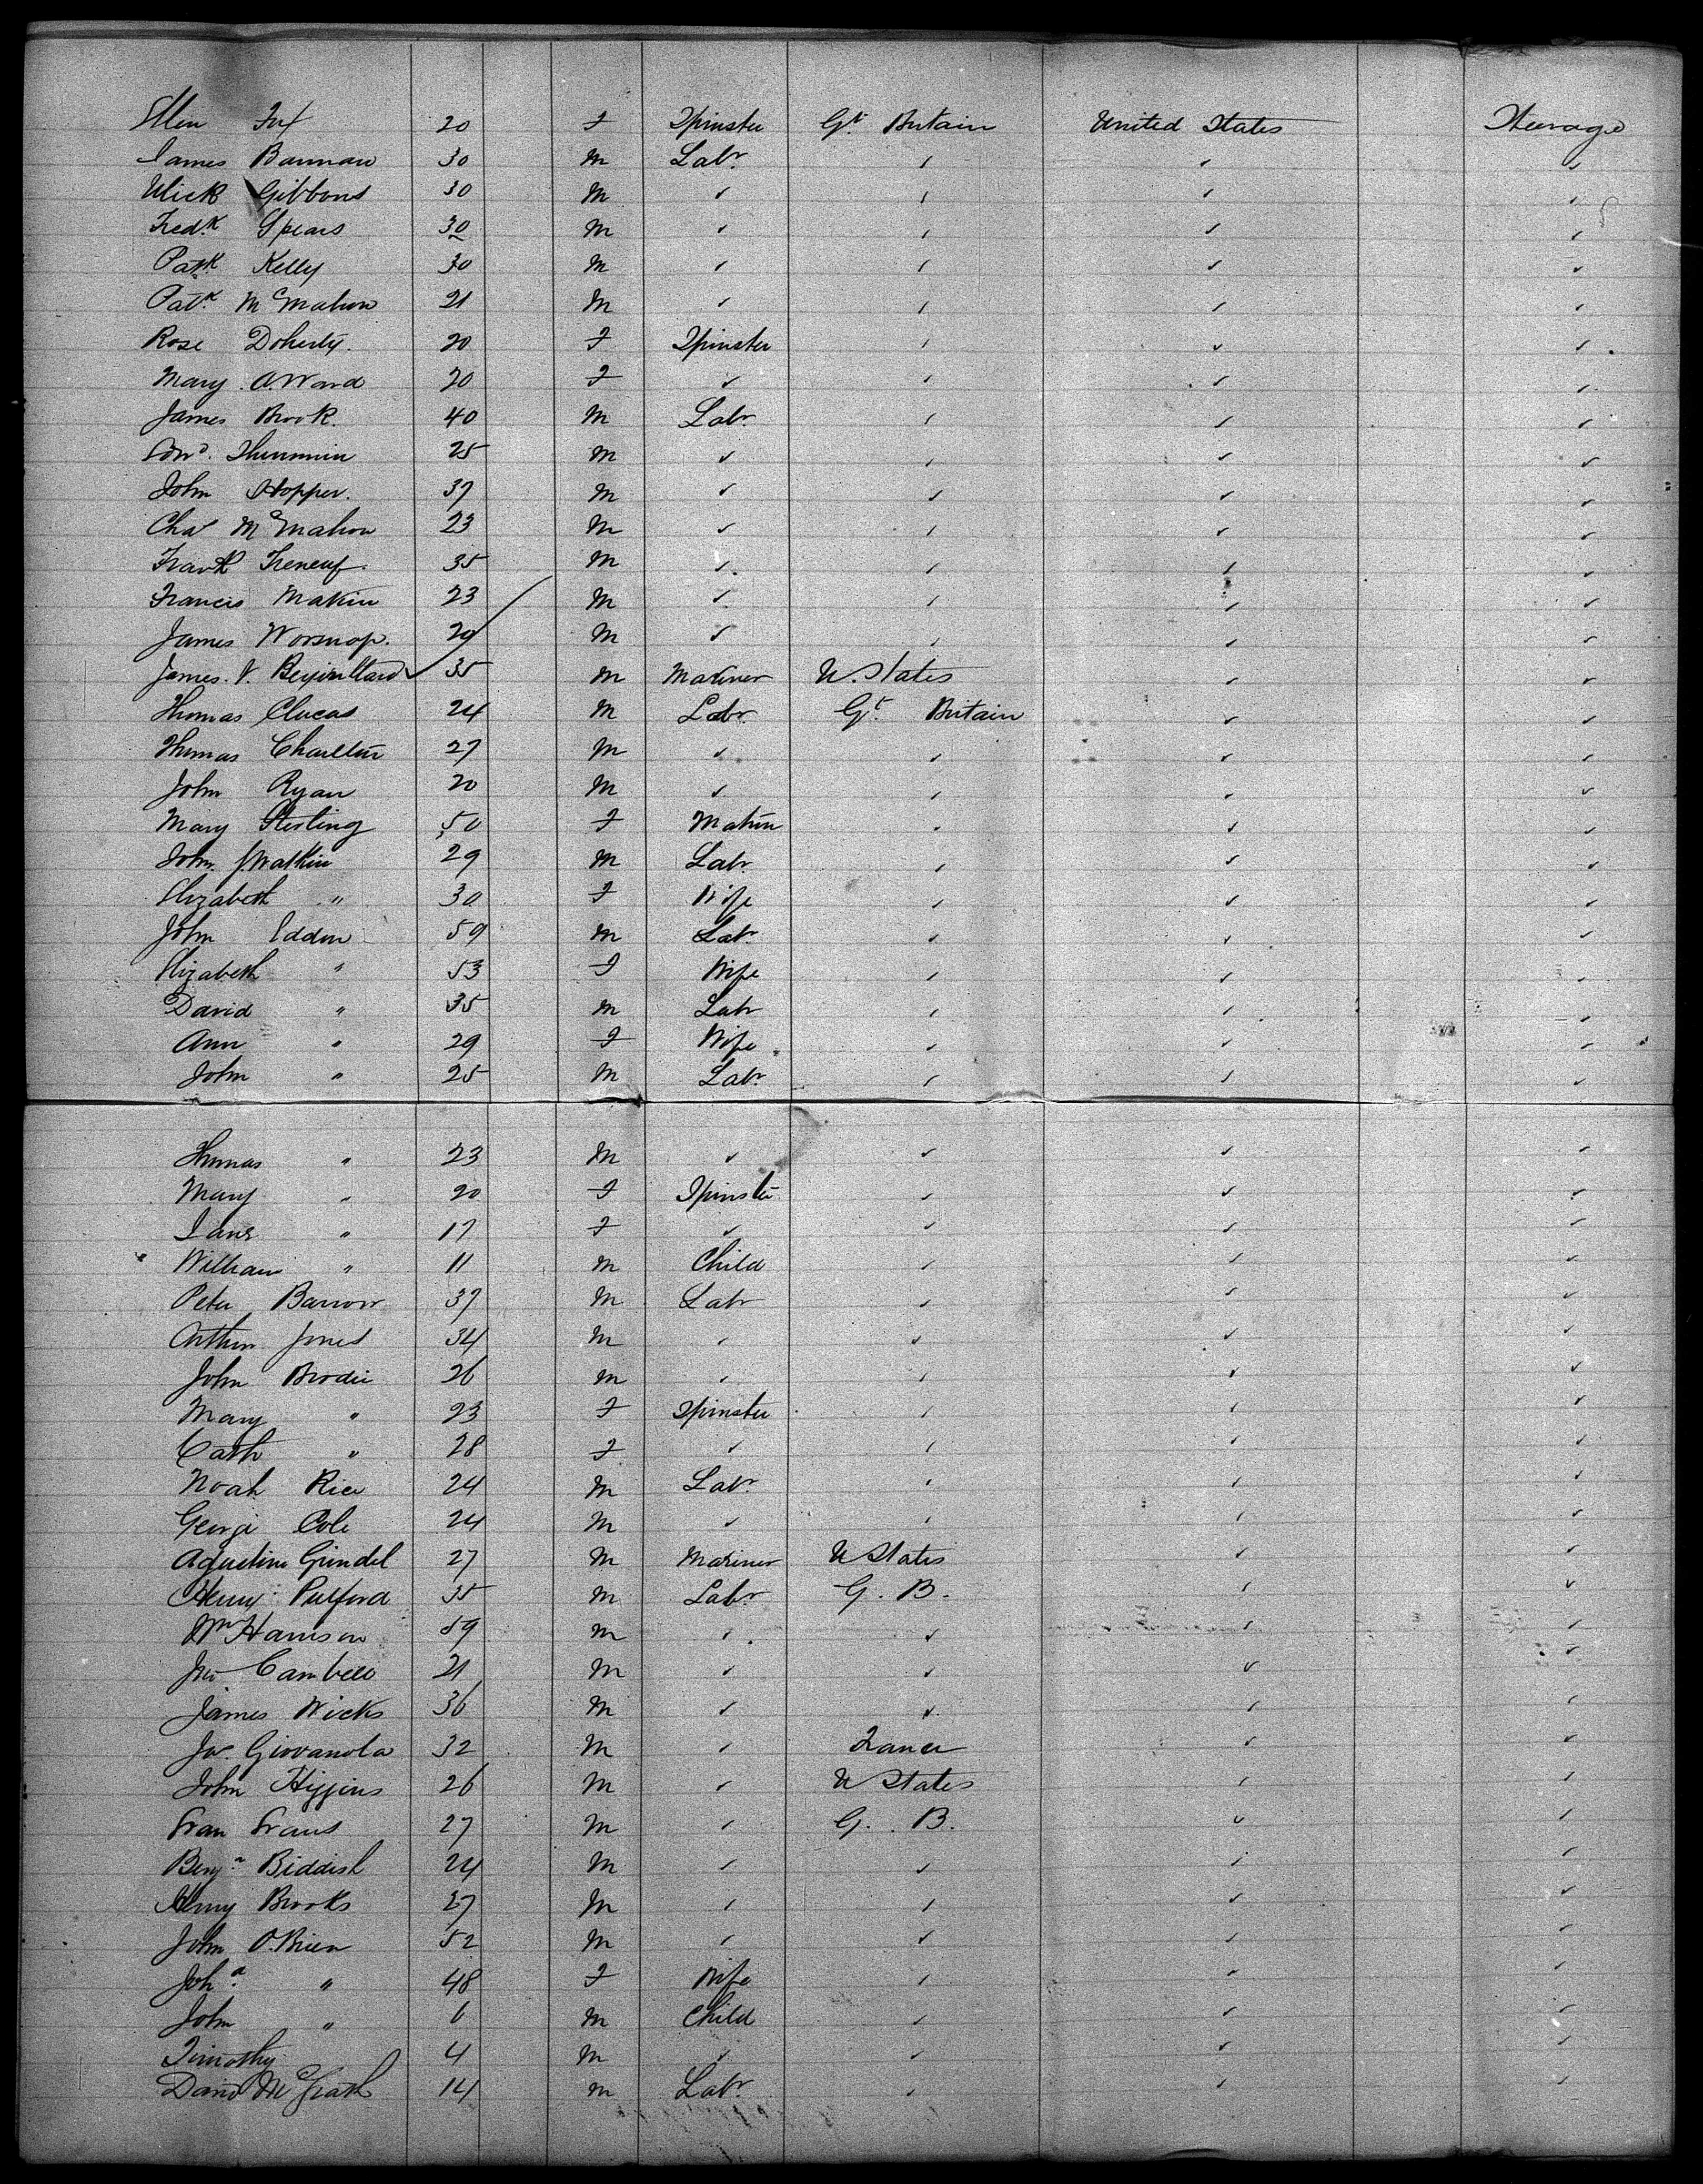 Ellen Fox 20 F Spinster Gt Britain United States Steerage
James Bannan 30 M Labr ✓ ✓ ✓
Mick Gibbons 30 M ✓ ✓ ✓ ✓
Fredk Spears 30 M ✓ ✓ ✓ ✓
Patk Kelly 30 M ✓ ✓ ✓ ✓
Patk McMahon 21 M ✓ ✓ ✓ ✓
Rose Doherty. 20 F Spinster ✓ ✓ ✓
Mary A. Ward 20 F ✓ ✓ ✓ ✓
James Brook. 40 M Labr ✓ ✓ ✓
Edwd. 25 M ✓ ✓ ✓ ✓
John Hopper. 37 M ✓ ✓ ✓ ✓
Chas McMahon 23 M ✓ ✓ ✓ ✓
Frank 35 M ✓ ✓ ✓ ✓
Francis Makin 23 M ✓ ✓ ✓ ✓
James Worsnop. 29 M ✓ ✓ ✓ ✓
James. V. 35 M Mariner U. States ✓ ✓
Thomas Clucas 24 M Labr Gt Britain ✓ ✓
Thomas Charlton 27 M ✓ ✓ ✓ ✓
John Ryan 20 M ✓ ✓ ✓ ✓
Mary Sterling 50 F Matron ✓ ✓ ✓
John J. Watkin 29 M Labr ✓ ✓ ✓
Elizabeth " 30 F Wife ✓ ✓ ✓
John Eddon 59 M Labr ✓ ✓ ✓
Elizabeth " 53 F Wife ✓ ✓ ✓
David " 35 M Labr ✓ ✓ ✓
Ann " 29 F Wife ✓ ✓ ✓
John " 25 M Labr ✓ ✓ ✓
Thomas " 23 M ✓ ✓ ✓ ✓
Mary " 20 F Spinster ✓ ✓ ✓
Jane " 17 F ✓ ✓ ✓ ✓
William " 11 M Child ✓ ✓ ✓
Peter Barrow 37 M Labr ✓ ✓ ✓
Arthur Jones 34 M ✓ ✓ ✓ ✓
John Brodie 26 M ✓ ✓ ✓ ✓
Mary " 23 F Spinster ✓ ✓ ✓
Cath " 28 F ✓ ✓ ✓ ✓
Noah Rice 24 M Labr ✓ ✓ ✓
George Cole 24 M ✓ ✓ ✓ ✓
Agustine Grindel 27 M Mariner U States ✓ ✓
Henry Pulford 35 M Labr G. B. ✓ ✓
Wm Harrison 59 M ✓ ✓ ✓ ✓
Jno Cambell 21 M ✓ ✓ ✓ ✓
James Wicks 36 M ✓ ✓ ✓ ✓
Jno. Giovanola 32 M ✓ France ✓ ✓
John Higgins 26 M ✓ U States ✓ ✓
27 M ✓ G. B. ✓ ✓
Benjn Biddish 24 M ✓ ✓ ✓ ✓
Henry Brooks 27 M ✓ ✓ ✓ ✓
John O'Brien 52 M ✓ ✓ ✓ ✓
Joha " 48 F Wife ✓ ✓ ✓
John " 6 M Child ✓ ✓ ✓
Timothy 4 M ✓ ✓ ✓ ✓
David McGrath 14 M Labr ✓ ✓ ✓